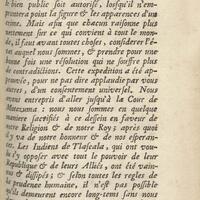 le bien public soit autorisé, lorsqu'il n'em-
pruntera point la figure & les apparences d'un
crime. Mais afin que chacun raisonne plus
nettement sur ce qui convient à tout le mon-
de, il faut avant toutes choses, considerer l'é-
tat auquel nous sommes, & prendre pour une
bonne fois une résolution qui ne souffre plus
de contradictions. Cette expedition a été ap-
prouvée, pour ne pas dire applaudie par vous
autres, d'un consentement universel. Nous
avons entrepris d'aller jusqu'à la Cour de
Motezuma: nous nous sommes en quelque
maniere sacrifiés à ce dessein en faveur de
notre Religion & de notre Roy; aprés quoi
il y va de notre honneur & de nos esperan-
ces. Les Indiens de Tlascala, qui ont vou-
lu s'y opposer avec tout le pouvoir de leur
République & de leurs Alliés, ont été vain-
cus & dissipés; & selon toutes les regles de
la prudence humaine, il n'est pas possible
qu'ils demeurent encore long-tems sans nous